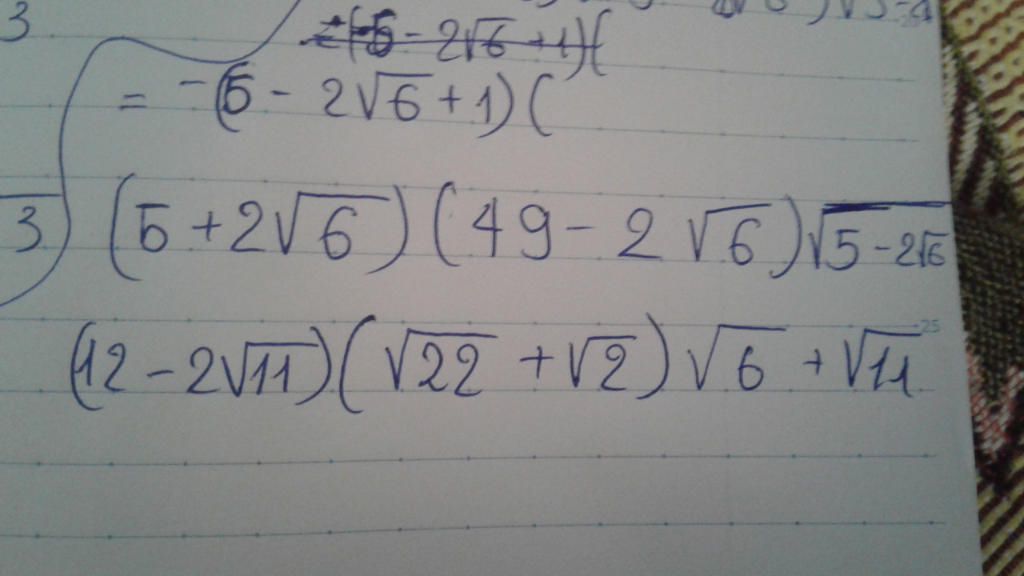 3
(5 - 2√6 + 1)(
= -(5 - 2√6 + 1)(
3 (5 + 2√6)(49 - 2√6)√5 - 2√6
25
(12 - 2√11)(√22 + √2)√6 + √11